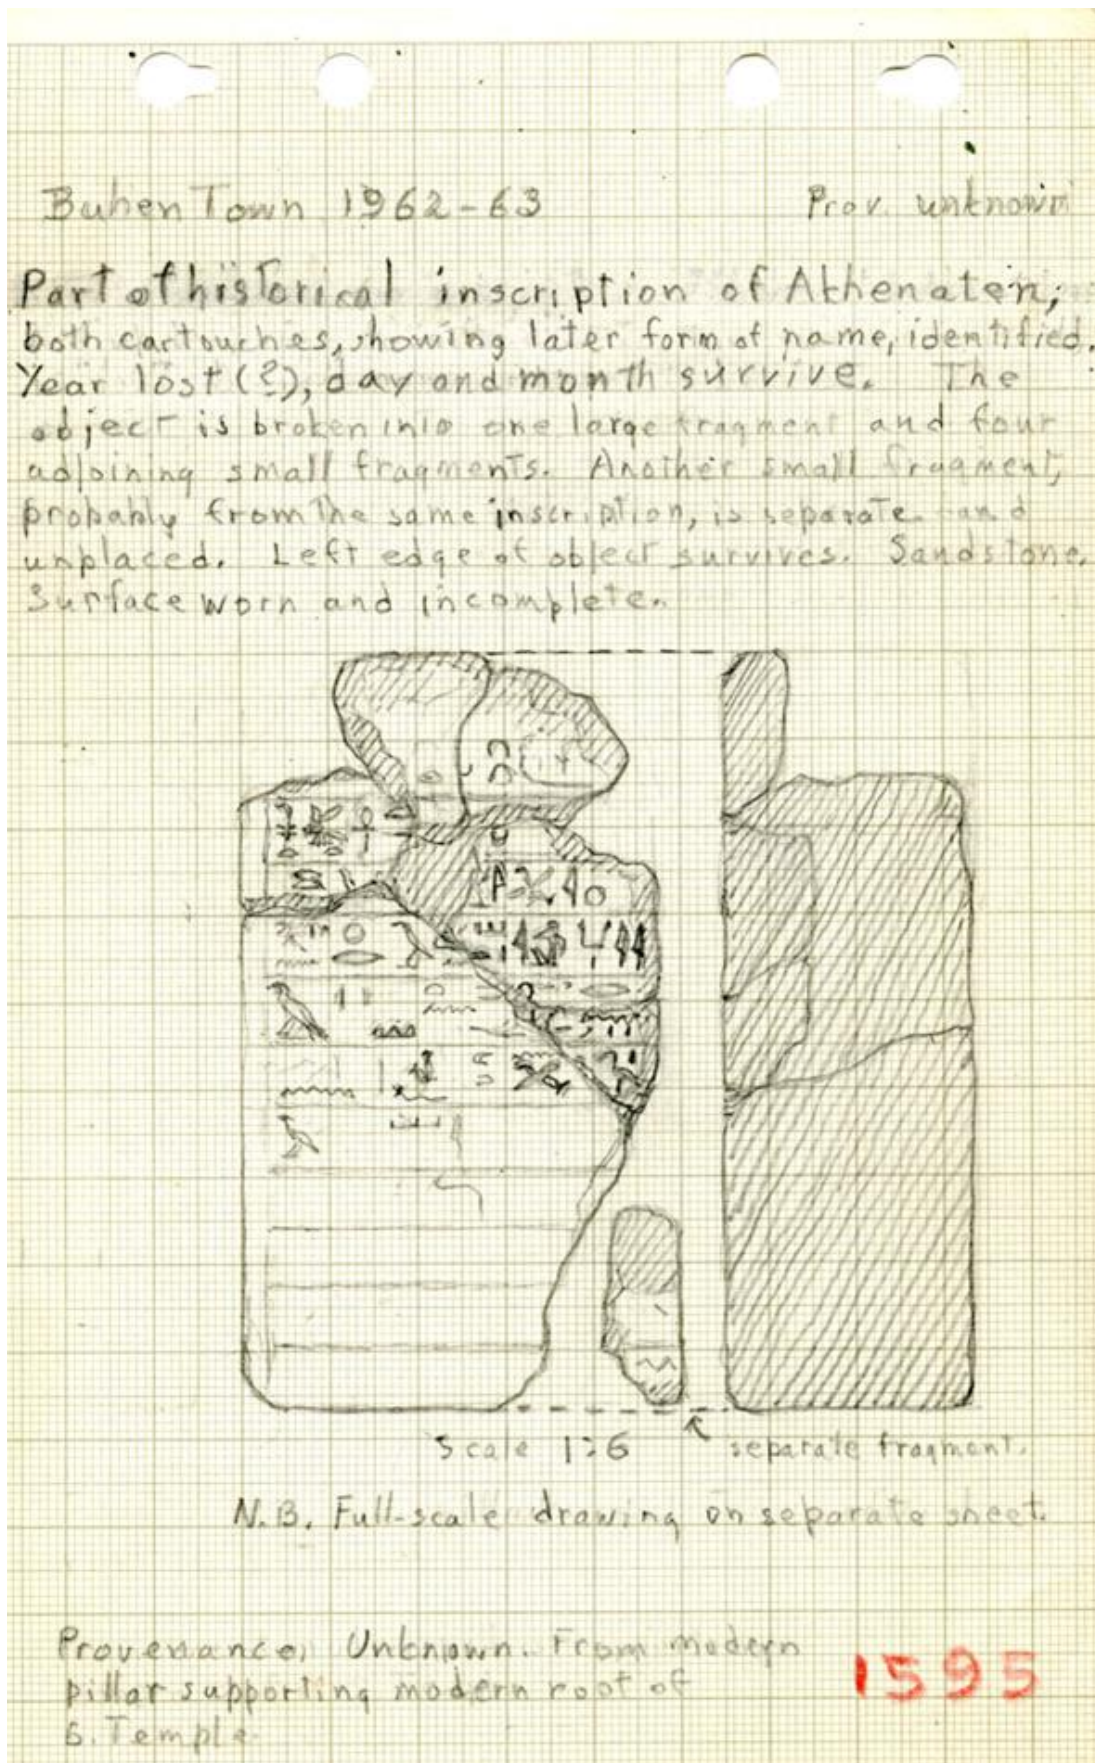 Buhen Town 1962-63 Prov. unknown
Part of historical inscription of Akhenaten;
both cartouches, showing later form of name, identified.
Year lost (?), day and month survive. The
object is broken into one large fragment and four
adjoining small fragments. Another small fragment,
probably from the same inscription, is separate and
unplaced. Left edge of object survives. Sandstone.
Surface worn and incomplete.
Scale 1:6 separate fragment.
N.B. Full-scale drawing on separate sheet.
Provenance, Unknown. From modern
pillar supporting modern roof of
S. Temple.
1595